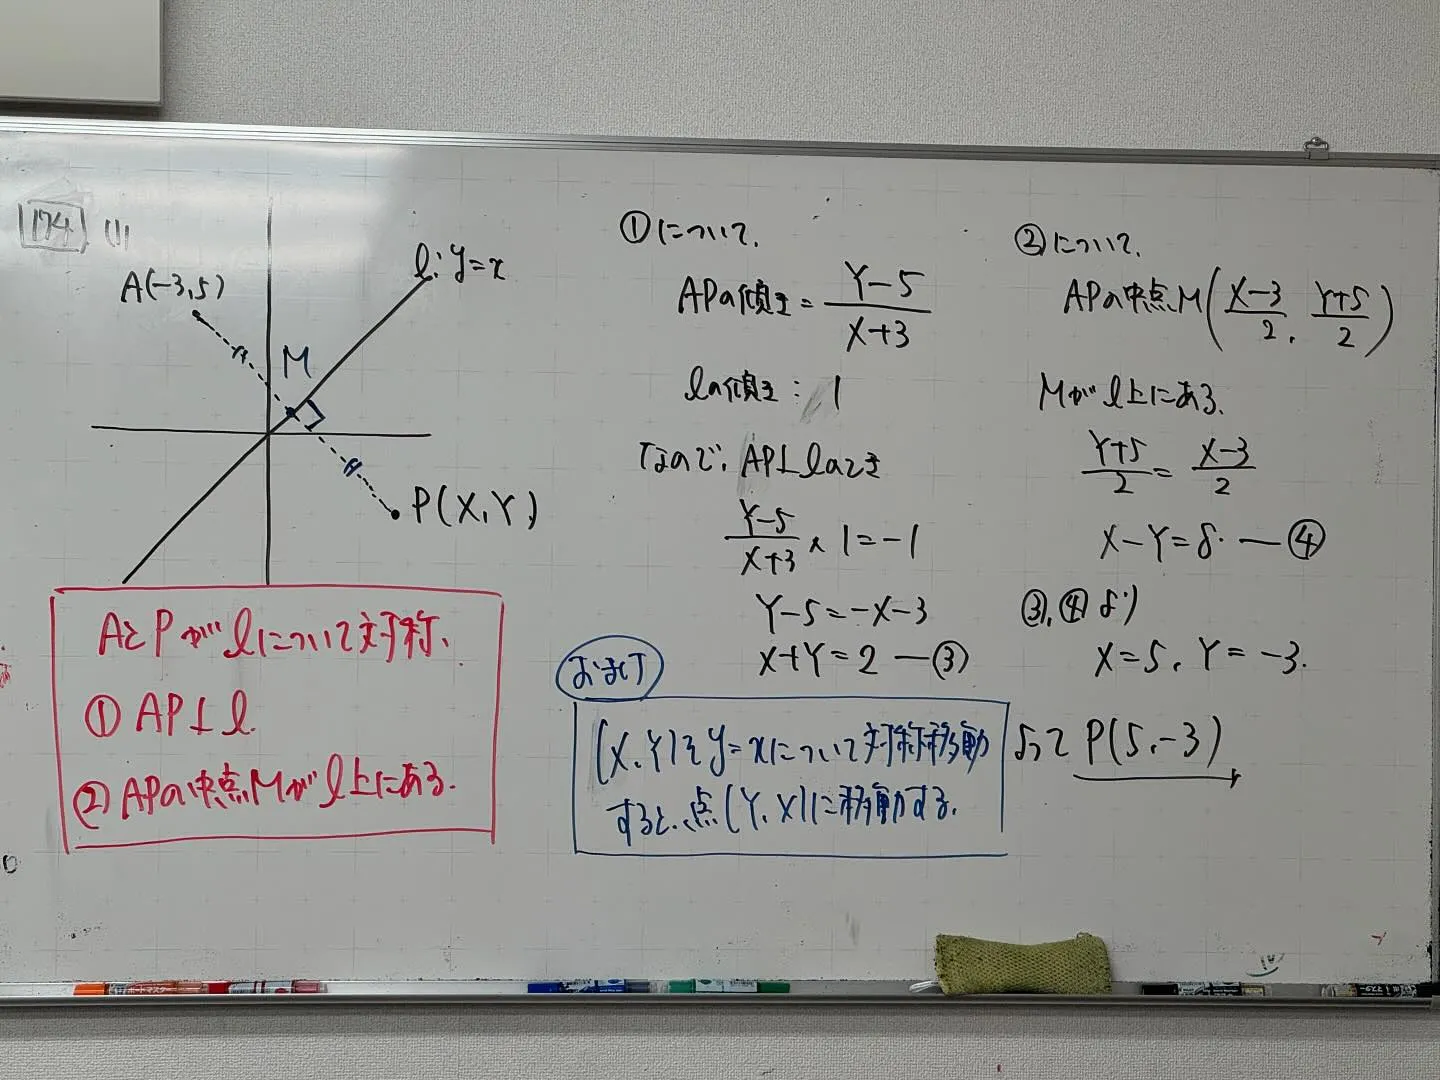 174 (1)
A(-3,5)
l: y=x
M
P(X,Y)
AとPがlについて対称、
① AP⊥l
② APの中点Mがl上にある.
①について、
APの傾き = \frac{Y-5}{X+3}
lの傾き : 1
なので、AP⊥lのとき
\frac{Y-5}{X+3} × 1 = -1
Y-5=-X-3
X+Y=2 —③
おまけ
(X,Y)をy=xについて対称移動
すると、点(Y,X)に移動する.
②について、
APの中点M(\frac{X-3}{2}, \frac{Y+5}{2})
Mがl上にある.
\frac{Y+5}{2} = \frac{X-3}{2}
X-Y=8. —④
③,④より
X=5, Y=-3.
よって P(5,-3)